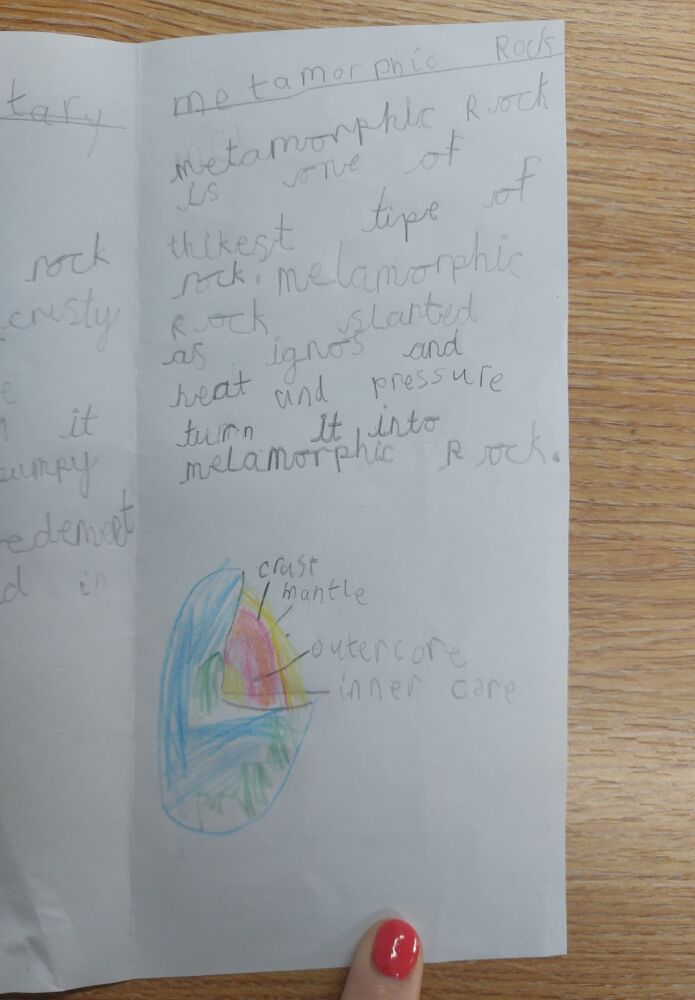 tary
rock
crusty
it
umpy
in
metamorphic Rock
metamorphic Rock
is one of
thikest tipe of
rock. melamorphic
Rock slanted
as ignos and
heat and pressure
turn It into
melamorphic Rock.
crust
mantle
outercore
inner care